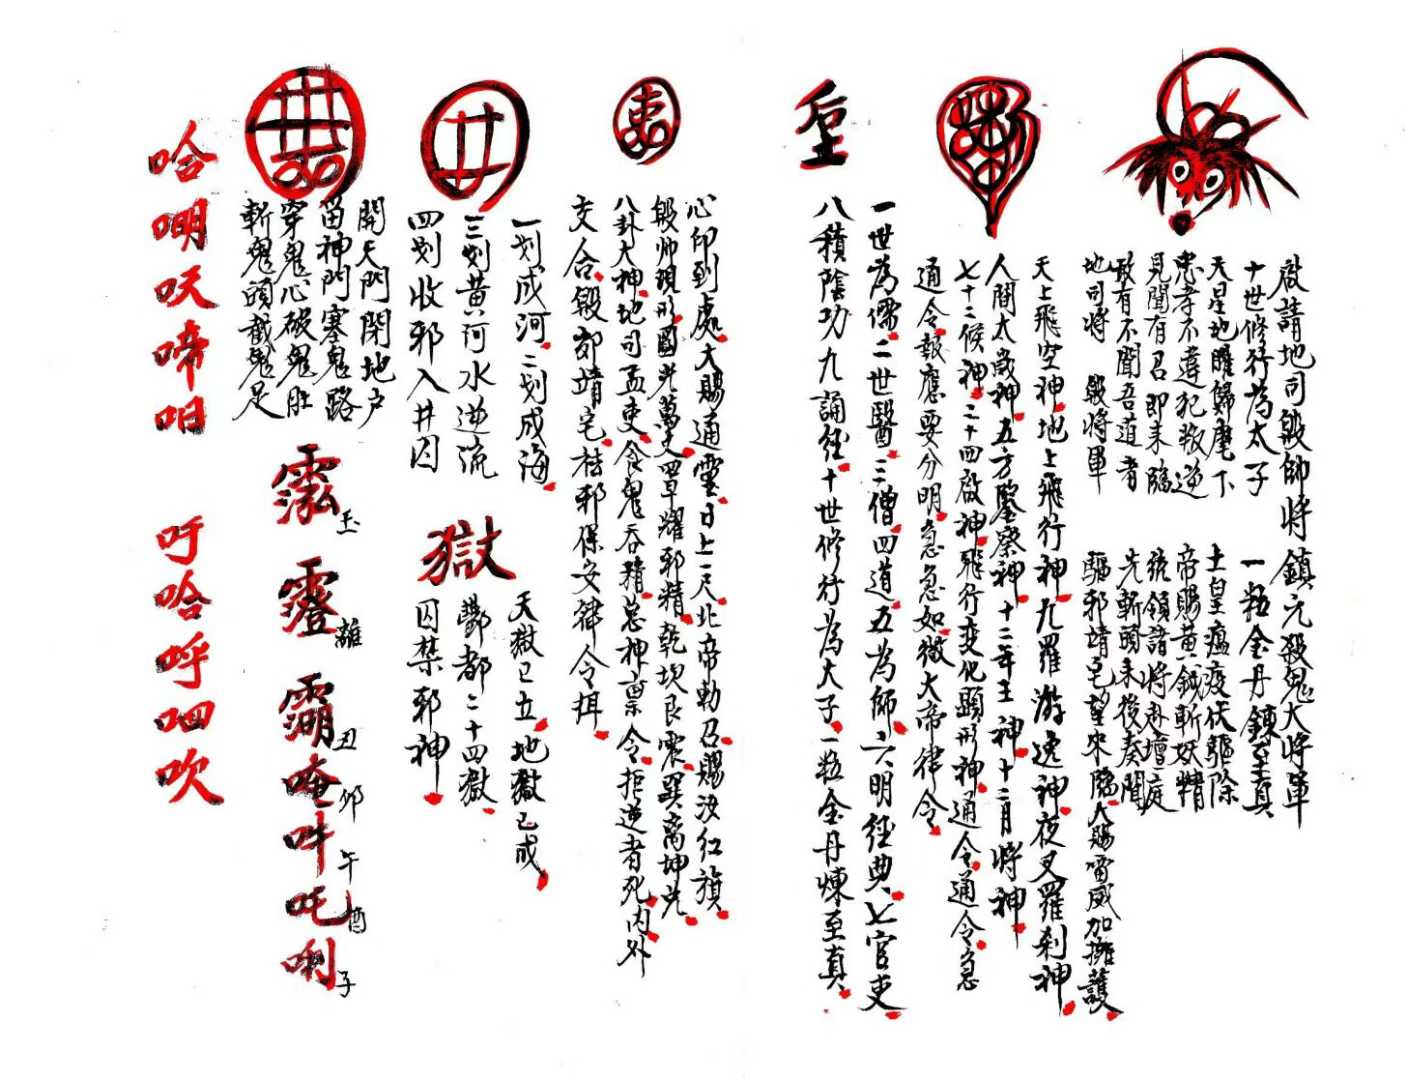 啟請地司殷帥將鎮元殺鬼大將軍
十世修行為太子 一粒金丹鍊至真
天星地曜歸麾下 土皇瘟疫伏驅除
忠孝不違犯叛逆 帝賜黃鉞斬妖精
見聞有召即来臨 統領諸將赴壇庭
敢有不聞吾道者 先斬頭来後奏聞
地司將 殷將軍 驅邪靖宅望来臨大賜雷威加擁護
天上飛空神地上飛行神九羅游逸神夜叉羅刹神
人間太歲神五方鑒察神十二年王神十二月將神
七十二候神二十四啟神飛行变化顯形神通令通令急
通令報應要分明急急如微大帝律令
一世為儒二世醫三僧四道五為師六明經典七官吏
八積陰功九誦经十世修行為太子一粒金丹煉至真
心印到處大賜通靈日上一尺北帝勅召賜汝红旗
殷帅現形圓光萬丈罩耀邪精乾坎艮震巽离坤兑
八卦大神地司孟吏食鬼吞精惡神禀令拒逆者死内外
交合殷郊靖宅祛邪保安律令揖
一划成河二划成海
三划黄河水逆流
四划收邪入井囚
獄
天獄已立地獄已成
酆都二十四獄
囚禁邪神
開天門閉地户
留神門塞鬼路
穿鬼心破鬼肚
斬鬼頭截鬼足
唵吽吒唎
離 丑 卯 午 酉 子
哈 啼 呾 吁哈呼呬吹